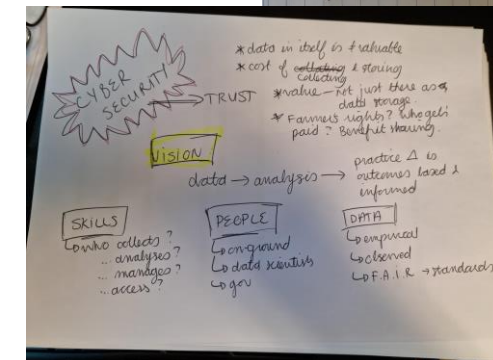 CYBER
SECURITY
→ TRUST
* data in itself is valuable
* cost of collating & storing
collecting
* value – not just there as
data storage.
* Farmers rights? Who gets
paid? Benefit sharing.
VISION
data → analyses → practice Δ is
outcomes based &
informed
SKILLS
↳ who collects?
... analyses?
... manages?
... access?
PEOPLE
↳ on-ground
↳ data scientists
↳ gov
DATA
↳ empirical
↳ observed
↳ F.A.I.R → standards